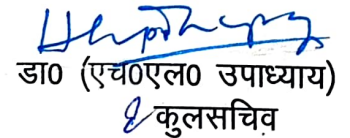 डा0 (एच0एल0 उपाध्याय)
कुलसचिव